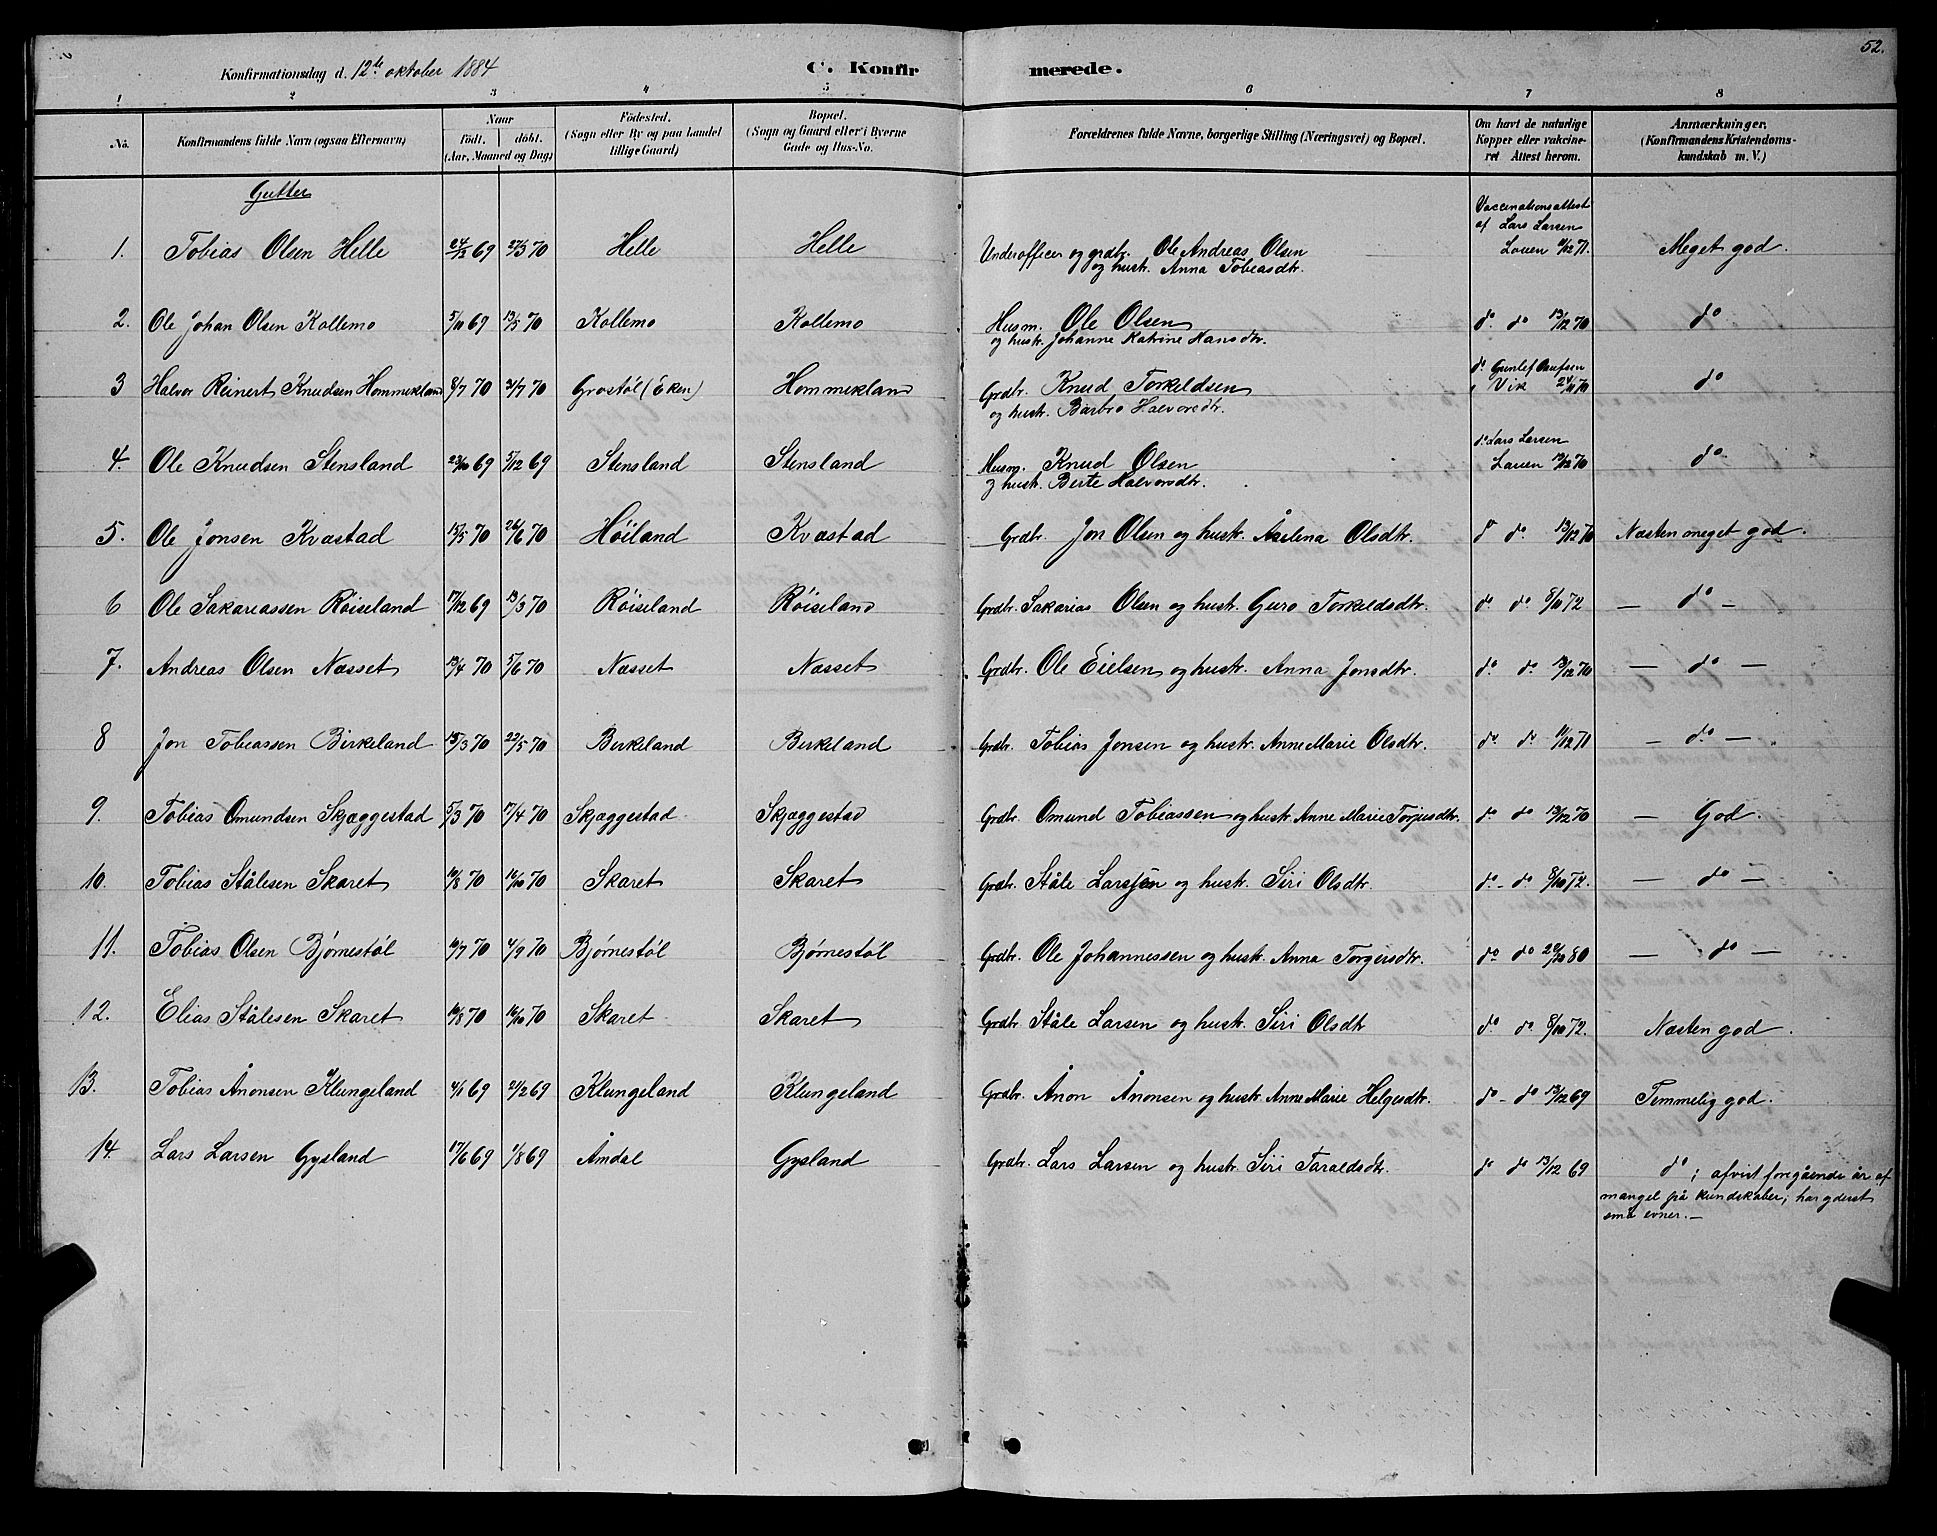 52.
Konfirmationsdag d. 12te oktober 1884 C. Konfirmerede.
1 2 3 4 5 6 7 8
No. Konfirmandens fulde Navn (ogsaa Efternavn) Naar födt. döbt. (Aar, Maaned og Dag) Födested. (Sogn eller By og paa Landet tillige Gaard) Bopæl. (Sogn og Gaard eller i Byerne Gade og Hus-No. Forældrenes fulde Navne, borgerlige Stilling (Næringsvei) og Bopæl. Om havt de naturlige Kopper eller vakcineret Attest herom. Anmærkninger. (Konfirmandens Kristendomskundskab m. V.)
Gutter
1. Tobias Olsen Helle 69 27/3 70 Helle Helle Underofficer og grdbr. Ole Andreas Olsen og hustr. Anna Tobiasdtr. Vaccinationsattest af Lars Larsen Lauen 11/12 71. Meget god.
2. Ole Johan Olsen Kollemo 5/10 69 13/5 70 Kollemo Kollemo Husm. Ole Olsen og hustr. Johanne Katrine Hansdtr. do. do 13/12 70 do
3 Halvor Reinert Knudsen Hommekland 8/7 70 31/7 70 Grostøl (Eken) Hommekland Grdbr. Knud Torkeldsen og hustr. Barbro Halvorsdtr. do Gunlef Vik 24/11 70 do
4. Ole Knudsen Stensland 23/10 69 5/12 69 Stensland Stensland Husm. Knud Olsen og hustr. Berte Halvorsdtr. do. Lars Larsen Lauen 13/12 70 do
5. Ole Jonsen Kvastad 15/5 70 26/6 70 Høiland Kvastad Grdbr. Jon Olsen og hustr. Åselena Olsdtr. do do. 13/12 70 Næsten meget god.
6 Ole Sakariassen Røiseland 17/12 69 13/3 70 Røiseland Røiseland Grdbr. Sakarias Olsen og hustr. Guro Torkeldsdtr. do do 8/10 72 — do —
7. Andreas Olsen Næsset 13/4 70 5/6 70 Næsset Næsset Grdbr. Ole Eielsen og hustr. Anna Jonsdtr. do. do. 13/12 70 — do —
8 Jon Tobiassen Birkeland 15/3 70 22/5 70 Birkeland Birkeland Grdbr. Tobias Jonsen og hustr. Anne Marie Olsdtr. do. do. 11/12 71 — do. —
9. Tobias Omundsen Skjæggestad 5/3 70 17/4 70 Skjæggestad Skjæggestad Grdbr. Omund Tobiassen og hustr. Anne Marie Torjusdtr. do. do 13/12 70 — God.
10. Tobias Stålesen Skaret 10/8 70 16/10 70 Skaret Skaret Grdbr. Ståle Larsen og hustr. Siri Olsdtr. do. - do 8/10 72. — do —
11. Tobias Olsen Bjørnestøl 10/7 70 4/9 70 Bjørnestøl Bjørnestøl Grdbr. Ole Johannessen og hustr. Anna Torgersdtr. do. do 80 — do —
12. Elias Stålesen Skaret 10/8 70 16/10 70 Skaret Skaret Grdbr. Ståle Larsen og hustr. Siri Olsdtr do do. 8/10 72. Næsten god.
13. Tobias Ånonsen Klungeland 4/1 69 21/2 69 Klungeland Klungeland Grdbr. Ånon Ånonsen og hustr. Anne Marie Helgesdtr. do - do 13/12 69 Temmelig god.
14. Lars Larsen Gysland 17/6 69 1/8 69 Åmdal Gysland Grdbr. Lars Larsen og hustr. Siri Taraldsdtr. do do 13/12 69 do; afvist foregående år af
mangel på kundskaber; har yderst
små evner. —